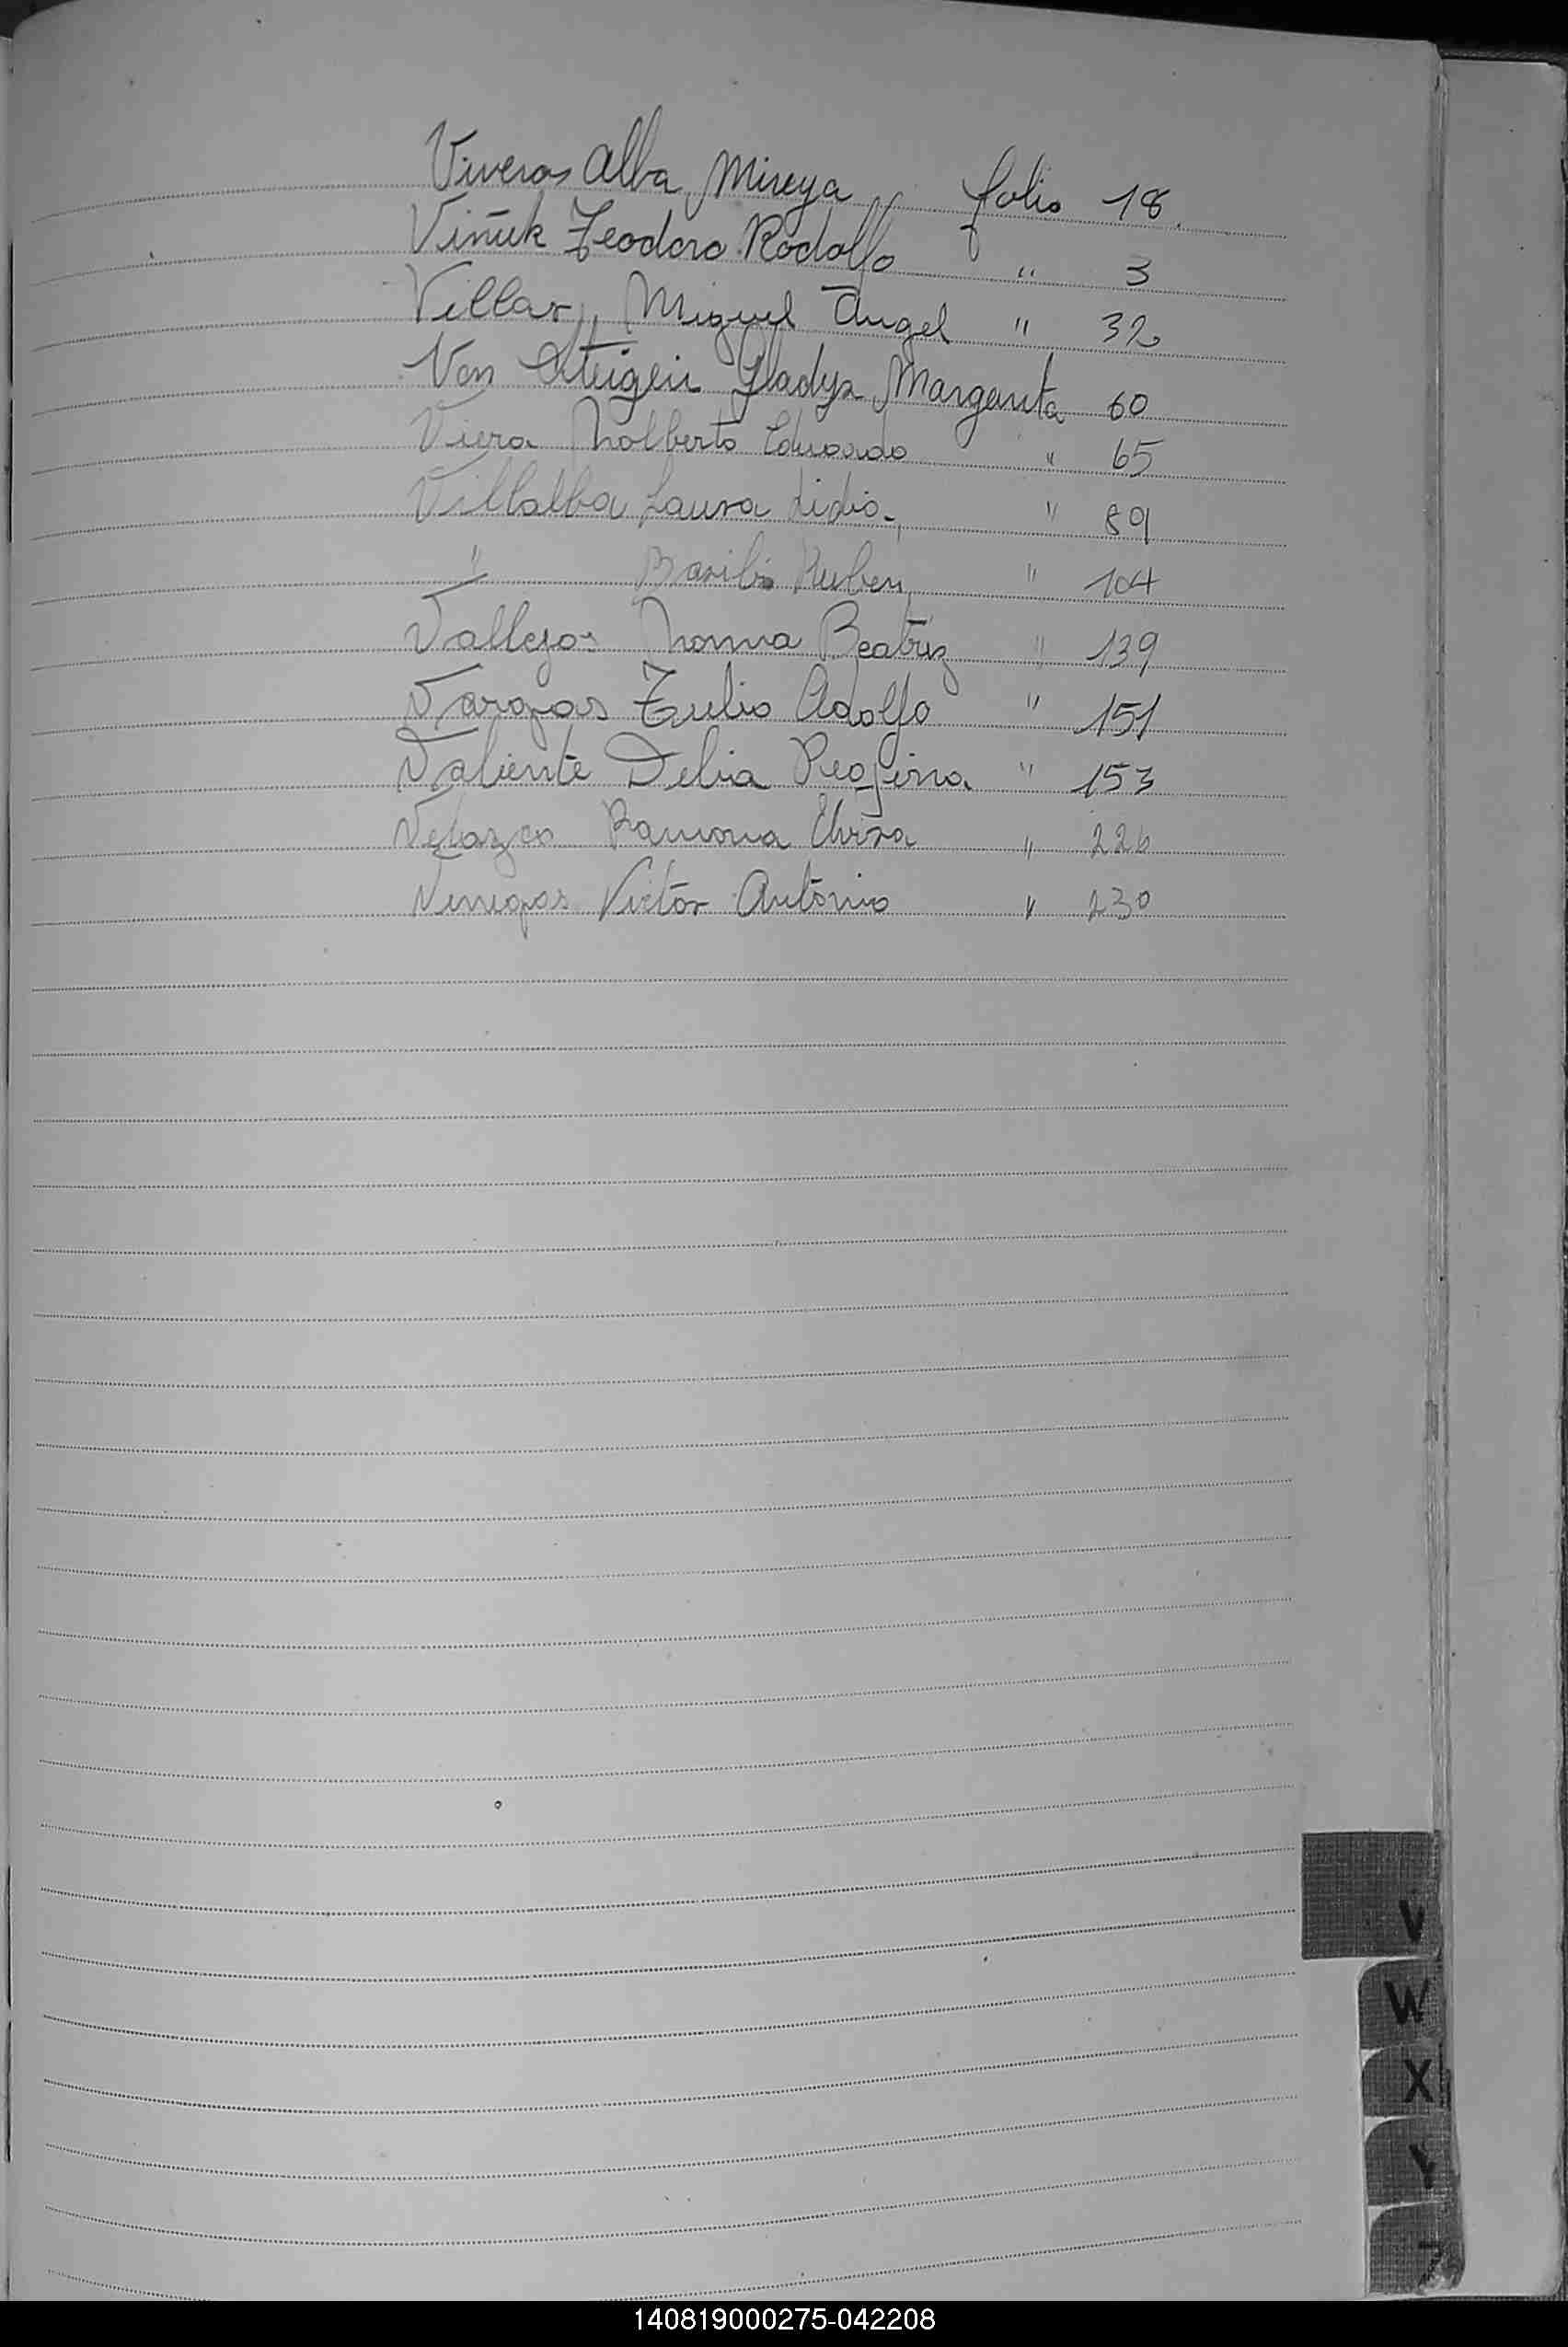 Viveros Alba Mireya folio 18.
Viñuk Teodoro Rodolfo " 3
Villar, Miguel Angel " 32
Von Steiger Gladys Margarita 60
Viera Nolberto Eduardo " 65
Villalba Laura Lidia " 89
" Basilio Ruben " 104
Vallejos Norma Beatriz " 139
Vargas Tulio Adolfo " 151
Valiente Delia Regina " 153
Velazco Ramona Elvira " 226
Venegas Victor Antonio " 230
V
W
X
Y
Z
140819000275-042208